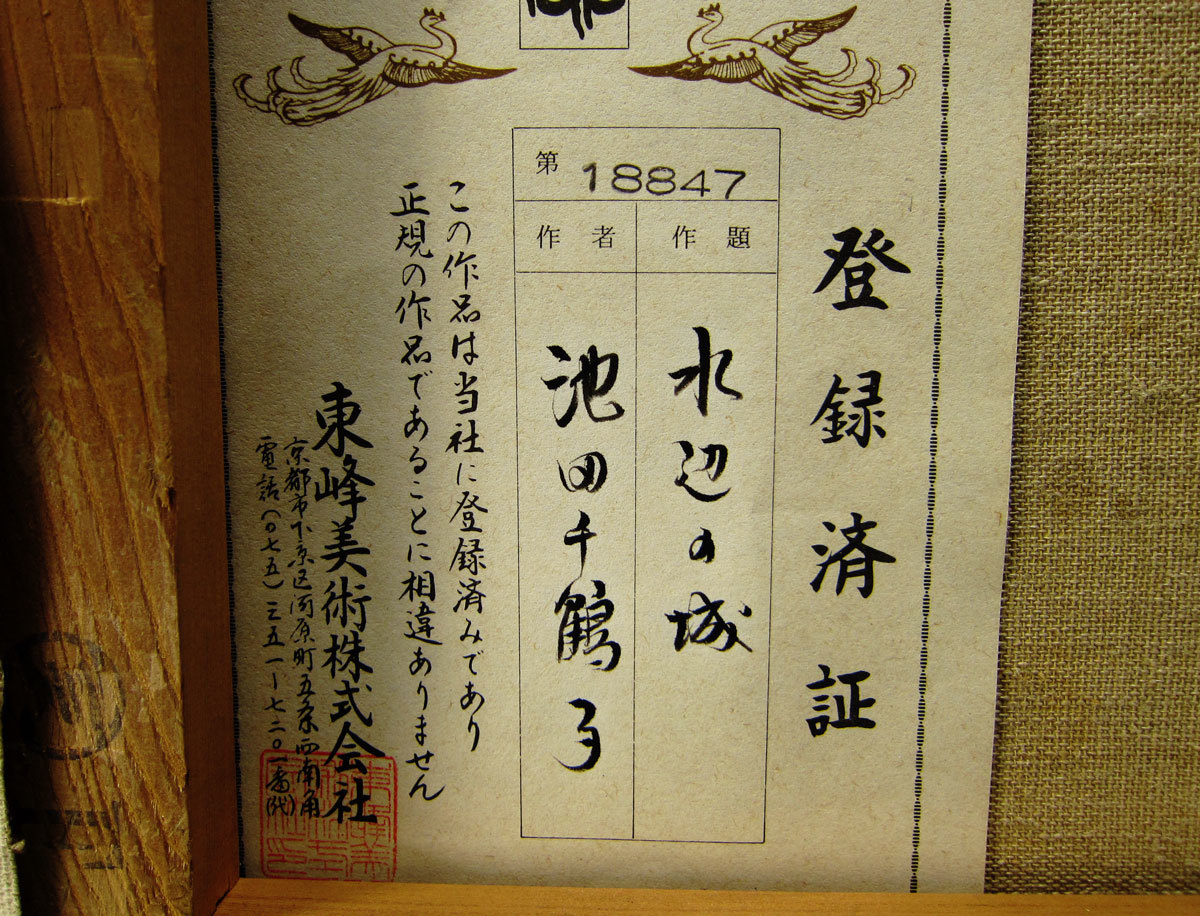 登録済証
第 18847
作題
水辺の城
作者
池田千鶴子
この作品は当社に登録済みであり
正規の作品であることに相違ありません
東峰美術株式会社
京都市下京区河原町五条西南角
電話(〇七五)三五一ー七二〇一番(代)